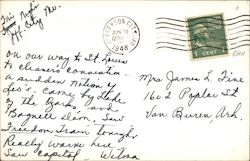 Fri Night
Jeff. City Mo.
On our way to St. Louis
to cleaners convention.
A sudden notion of
Les's. Came by Lake
of the Ozarks and
Bagnell Dam, Saw
Freedom Train tonight
Really warm here
Saw Capitol Wilma
JEFFERSON CITY
1948
1 CENT 1
Mrs James L. Fine
1602 Poplar St.
Van Buren, Ark.